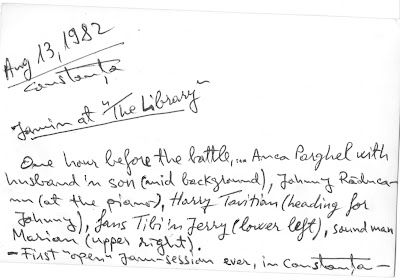 Aug 13, 1982
Constanța
Jammin at "The Library"
One hour before the battle,... Anca Parghel with
husband 'n son (mid background), Johnny Răduca-
nu (at the piano), Harry Tavitian (heading for
Johnny), fans Tibi 'n Jerry (lower left), sound man
Marian (upper right).
- First "open" jam-session ever, in Constanța -